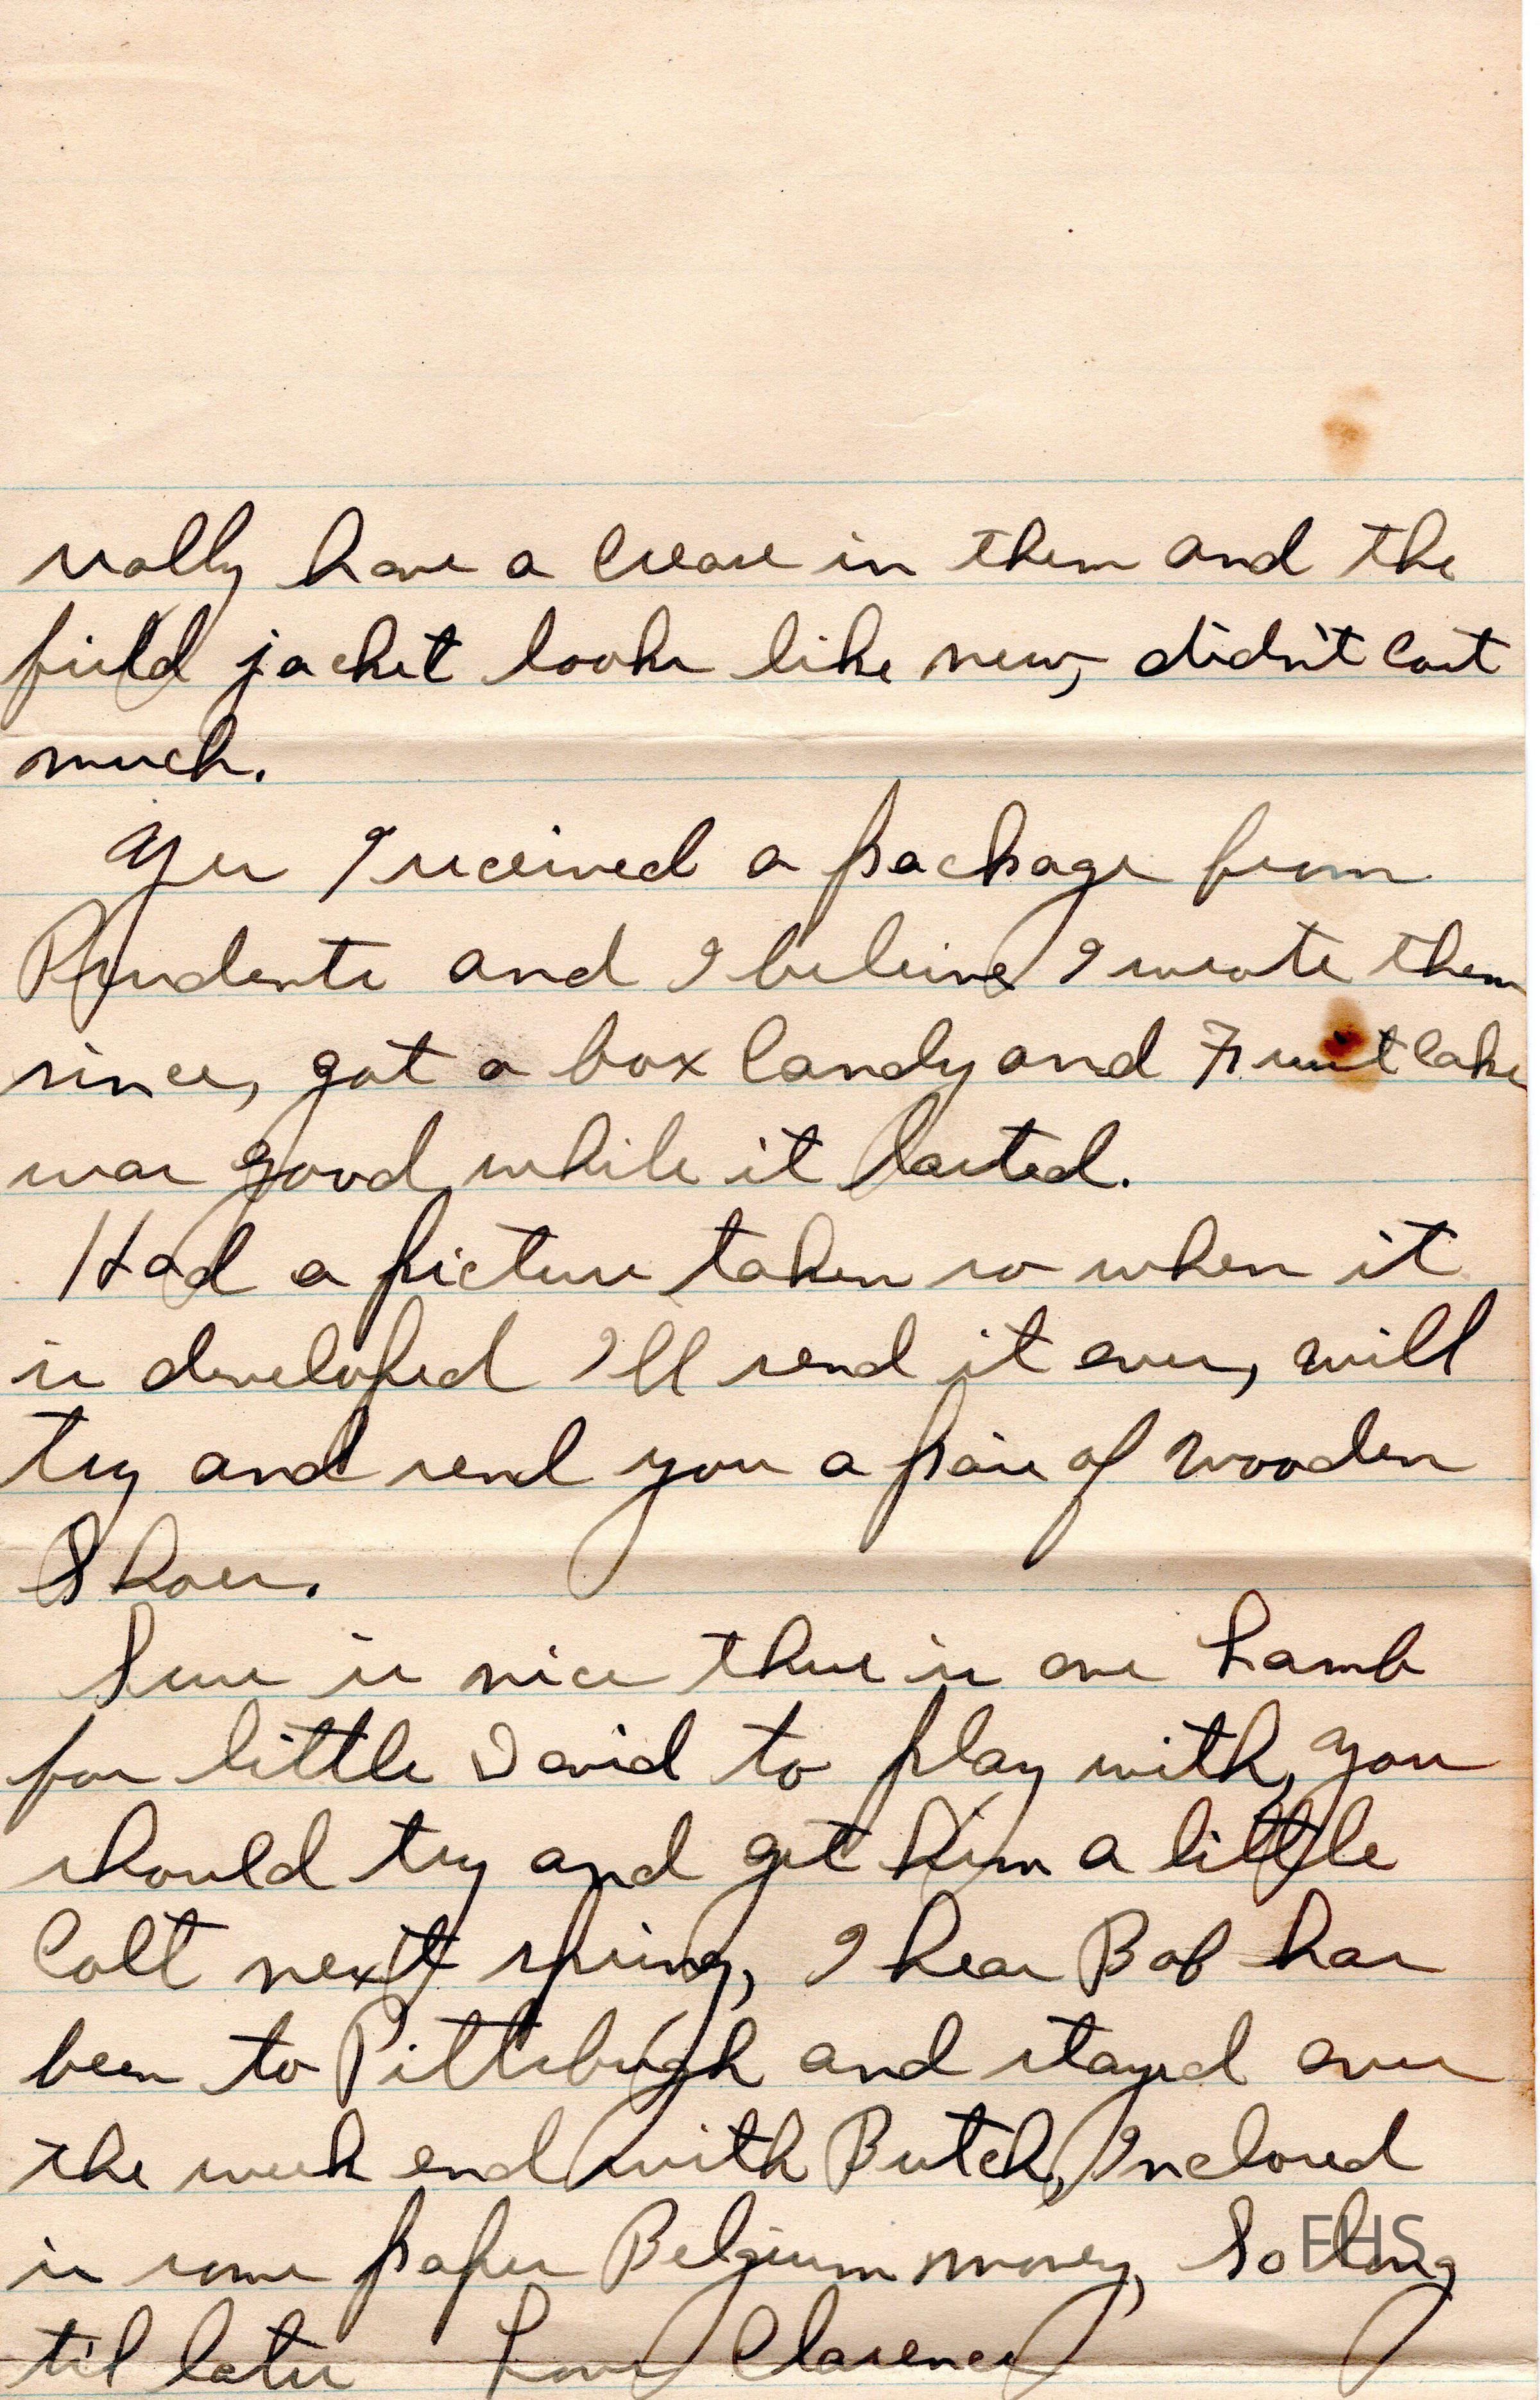 really have a crease in them and the
field jacket looks like new, didn't cost
much.
Yes I received a package from
Prudents and I believe I wrote them
since, got a box Candy and Fruit Cake
was good while it lasted.
Had a picture taken so when it
is developed I'll send it over, will
try and send you a pair of wooden
Shoes.
Sure is nice there is one Lamb
for little David to play with, you
should try and get him a little
Colt next spring, I hear Bob has
been to Pittsburgh and stayed over
the week end with Butch, Inclosed
is some paper Belgium money, So long
til later Love Clarence
FHS